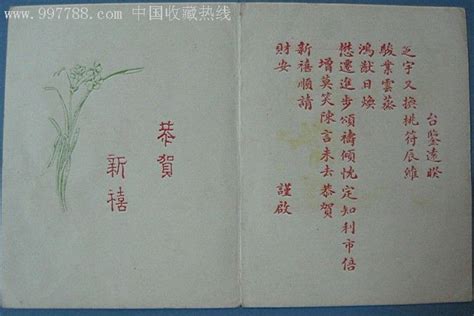 www.997788.com 中国收藏热线
台鑒遠睽
芝宇又換桃符辰維
駿業雲蒸
鴻猷日煥
慰遷進步頌禱傾忱定知利市倍
增莫笑陳言未去恭賀
新禧順請
財安 謹啟
恭賀
新禧